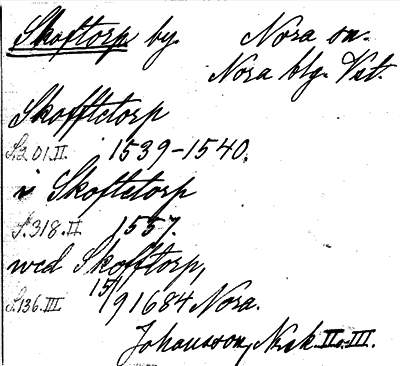 Skoftorp by. Nora sn.
Nora blg. Vst.
Skofftetorp
S. 201. II. 1539-1540.
i Skoftetorp
S. 318. II 1557.
wed Skofftorp,
S. 136. III 15/1 91684 Nora.
Johansson, Norsk. II o. III.